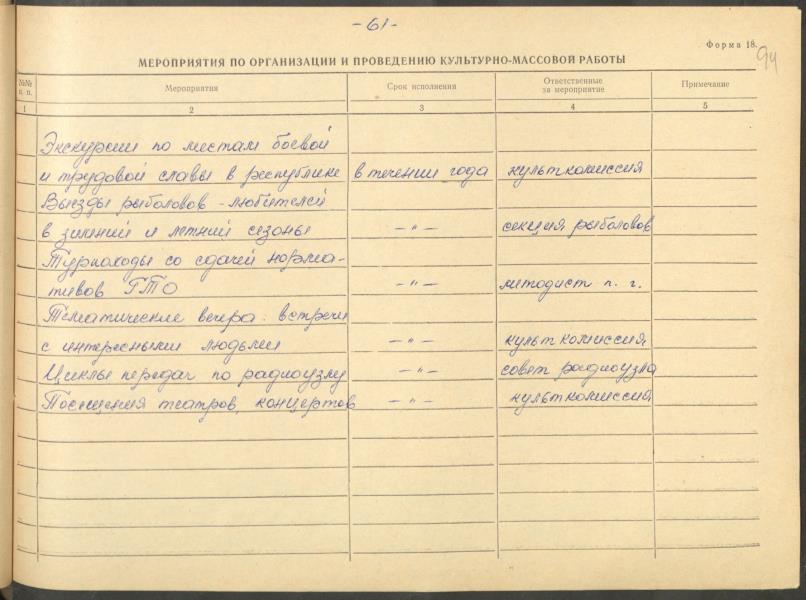 -61-
Форма 18.
94
МЕРОПРИЯТИЯ ПО ОРГАНИЗАЦИИ И ПРОВЕДЕНИЮ КУЛЬТУРНО-МАССОВОЙ РАБОТЫ
№№ п. п. Мероприятия Срок исполнения Ответственные за мероприятие Примечание
1 2 3 4 5
Экскурсии по местам боевой
и трудовой славы в республике в течении года культкомиссия
Выезды рыболовов-любителей
в зимний и летний сезоны —"— секция рыболовов
Турпоходы со сдачей норма-
тивов ГТО —"— методист п. г.
Тематические вечера. встречи
с интересными людьми —"— культкомиссия
Циклы передач по радиоузлу —"— совет радиоузла
Посещения театров, концертов —"— культкомиссия